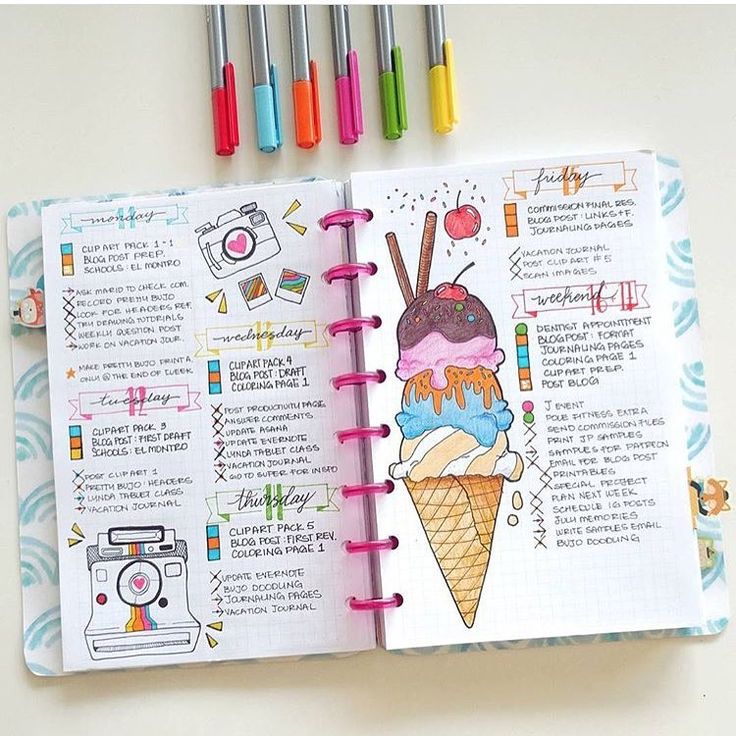 monday 11
CLIP ART PACK 1-1
BLOG POST PREP.
SCHOOLS: EL MONTRO
ASK MARID TO CHECK COM.
RECORD PRETTY BUJO
LOOK FOR HEADERS REF.
TRY DRAWING TUTORIALS
WEEKLY QUESTION POST
WORK ON VACATION JOUR.
MAKE PRETTY BUJO PRINTA.
ONLY @ THE END OF WEEK.
tuesday 12
CLIP ART PACK 3
BLOG POST: FIRST DRAFT
SCHOOLS: EL MONTRO
POST CLIPART 1
PRETTY BUJO: HEADERS
LYNDA TABLET CLASS
VACATION JOURNAL
wednesday 13
CLIPART PACK 4
BLOG POST: DRAFT
COLORING PAGE 1
POST PRODUCTIVITY PAGE
ANSWER COMMENTS
UPDATE ASANA
UPDATE EVERNOTE
LYNDA TABLET CLASS
VACATION JOURNAL
GO TO SUPER FOR INSFO
thursday
CLIPART PACK 5
BLOG POST: FIRST REV.
COLORING PAGE 1
UPDATE EVERNOTE
BUJO DOODLING
JOURNALING PAGES
VACATION JOURNAL
friday 15
COMMISSION FINAL RES.
BLOG POST: LINKS+F.
JOURNALING PAGES
VACATION JOURNAL
POST CLIP ART #5
SCAN IMAGES
weekend 16
DENTIST APPOINTMENT
BLOGPOST: FORMAT
JOURNALING PAGES
COLORING PAGE 1
CLIPART PREP.
POST BLOG
J EVENT
POLE FITNESS EXTRA
SEND COMMISSION FILES
PRINT JP SAMPLES
SAMPLES FOR PATREON
EMAIL FOR BLOG POST
PRINTABLES
SPECIAL PROJECT
PLAN NEXT WEEK
SCHEDULE IG POSTS
JULY MEMORIES
WRITE SAMPLES EMAIL
BUJO DOODLING